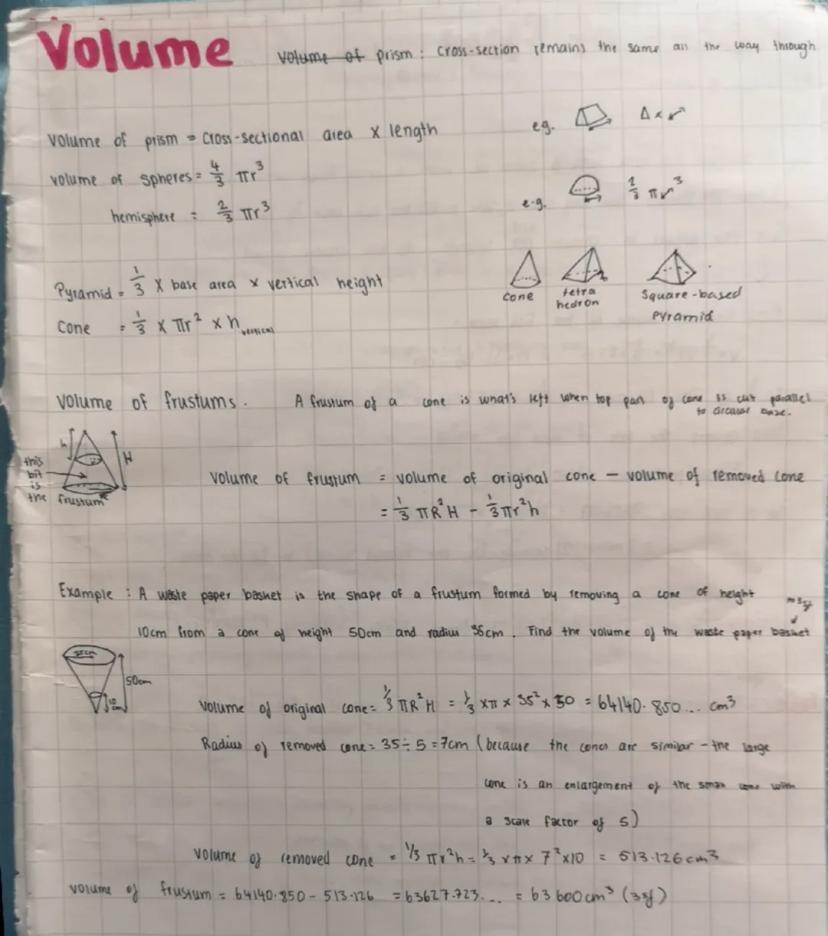 Volume
~~volume of~~ prism : cross-section remains the same all the way through
Volume of prism = cross-sectional area × length
e.g. Δ ×
volume of spheres = 4/3 πr³
hemisphere = 2/3 πr³
e.g. πr³
Pyramid = 1/3 × base area × vertical height
cone tetra hedron square-based pyramid
Cone = 1/3 × πr² × h vertical
Volume of frustums. A frustum of a cone is what's left when top part of cone is cut parallel
to circular base.
h H
this bit is the frustum
Volume of frustum = volume of original cone − volume of removed cone
= 1/3 πR²H − 1/3 πr²h
Example : A waste paper basket is the shape of a frustum formed by removing a cone of height
10cm from a cone of height 50cm and radius 35cm. Find the volume of the waste paper basket
to 3sf
35cm
50cm
10cm
Volume of original cone = 1/3 πR²H = 1/3 × π × 35² × 50 = 64140.850... cm³
Radius of removed cone = 35 ÷ 5 = 7cm (because the cones are similar - the large
cone is an enlargement of the small cone with
a scale factor of 5)
Volume of removed cone = 1/3 πr²h = 1/3 × π × 7² × 10 = 513.126cm³
volume of frustum = 64140.850 − 513.126 = 63627.723... = 63600cm³ (3sf)